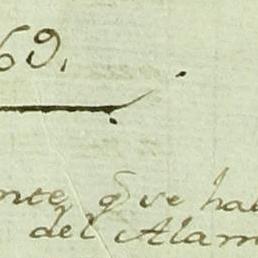 69.
nte, q̃ ve hal
del Alam